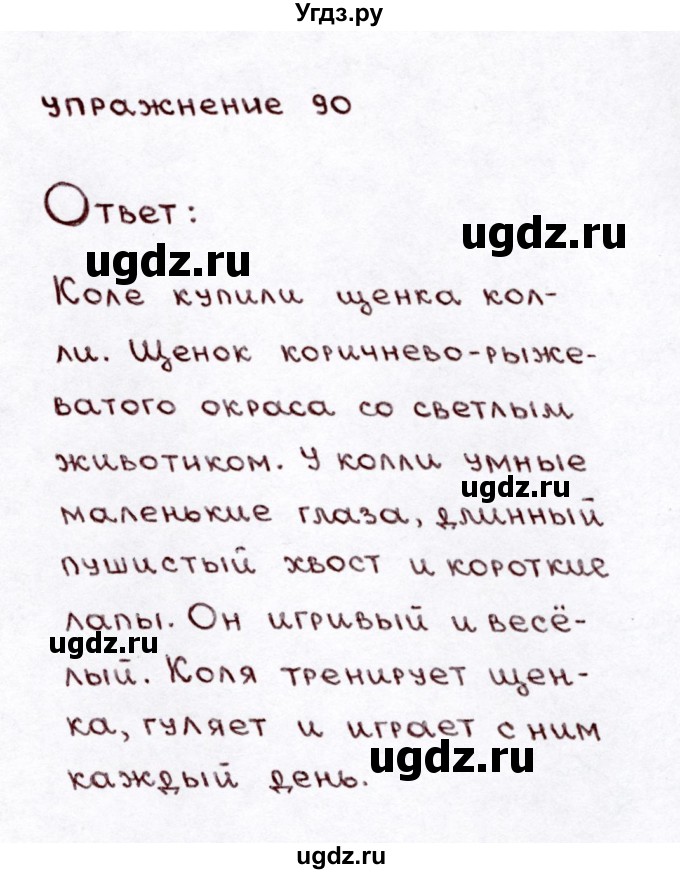 Угдз.ру
упражнение 90
Ответ:
ugdz.ru
ugdz.ru
Коле купили щенка кол-
ли. Щенок коричнево-рыже-
ватого окраса со светлым
животиком. У колли умные
ugdz.ru
маленькие глаза, длинный
пушистый хвост и короткие
лапы. Он игривый и весё-
ugdz.ru
лый. Коля тренирует щен-
ка, гуляет и играет с ним
ugdz.ru
каждый день.
ugdz.ru